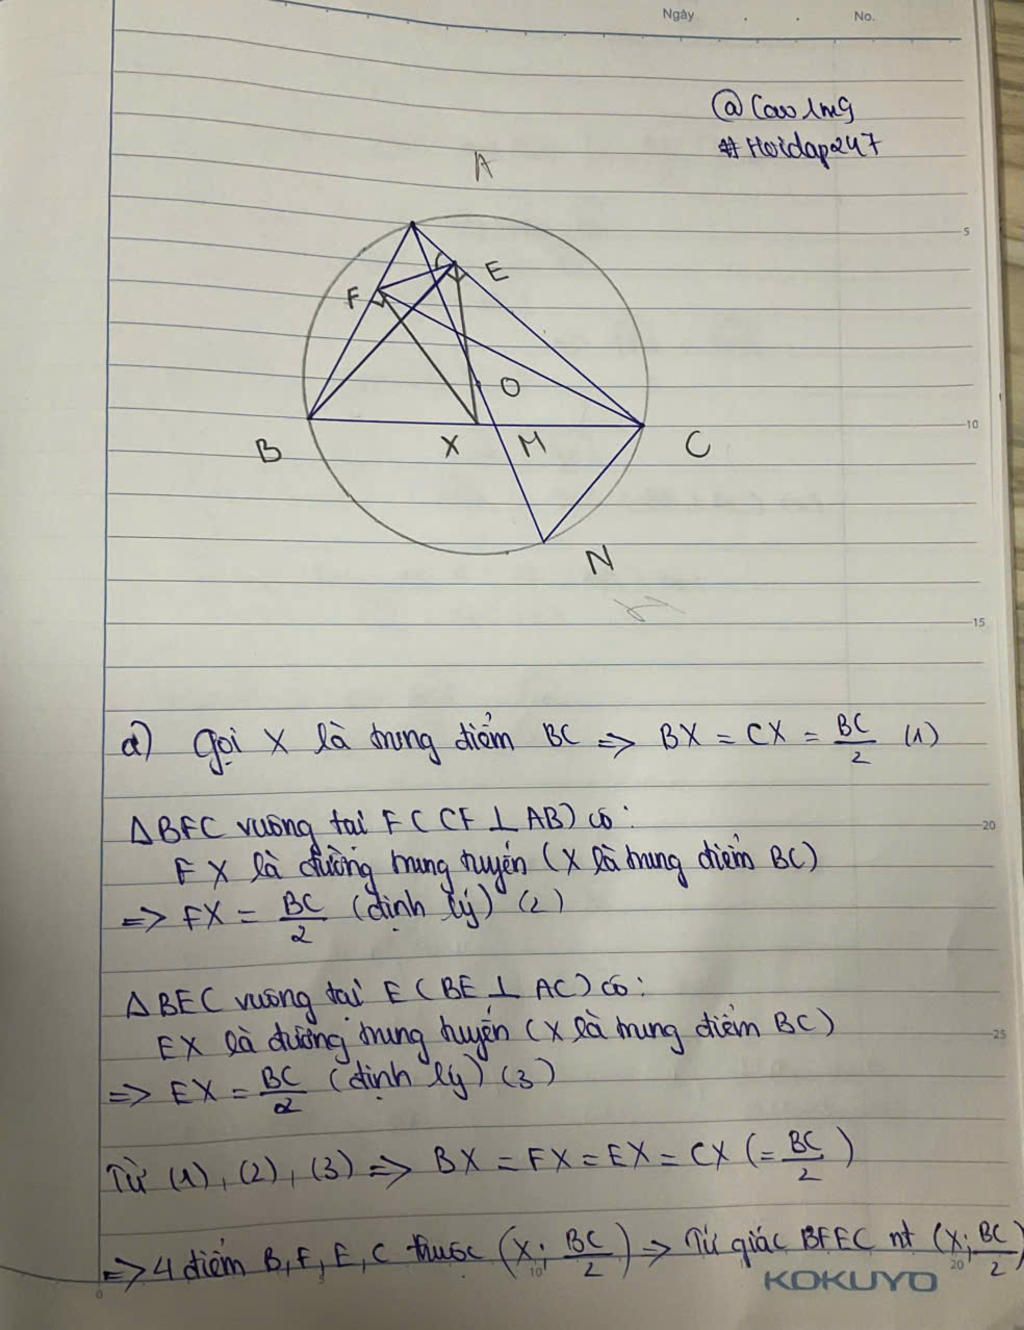 Ngày . . No.
@Caw1mg
#Hoidap247
A
5
E
F
O
10
B X M C
N
15
a) Gọi X là trung điểm BC => BX = CX = BC/2 (1)
ΔBFC vuông tại F (CF ⊥ AB) có:
20
FX là đường trung tuyến (X là trung điểm BC)
=> FX = BC/2 (định lý) (2)
ΔBEC vuông tại E (BE ⊥ AC) có:
EX là đường trung tuyến (X là trung điểm BC)
25
=> EX = BC/2 (định lý) (3)
Từ (1), (2), (3) => BX = FX = EX = CX (= BC/2)
=> 4 điểm B, F, E, C thuộc (X; BC/2) => Tứ giác BFEC nt (X; BC/2)
0 5 10 20
KOKUYO